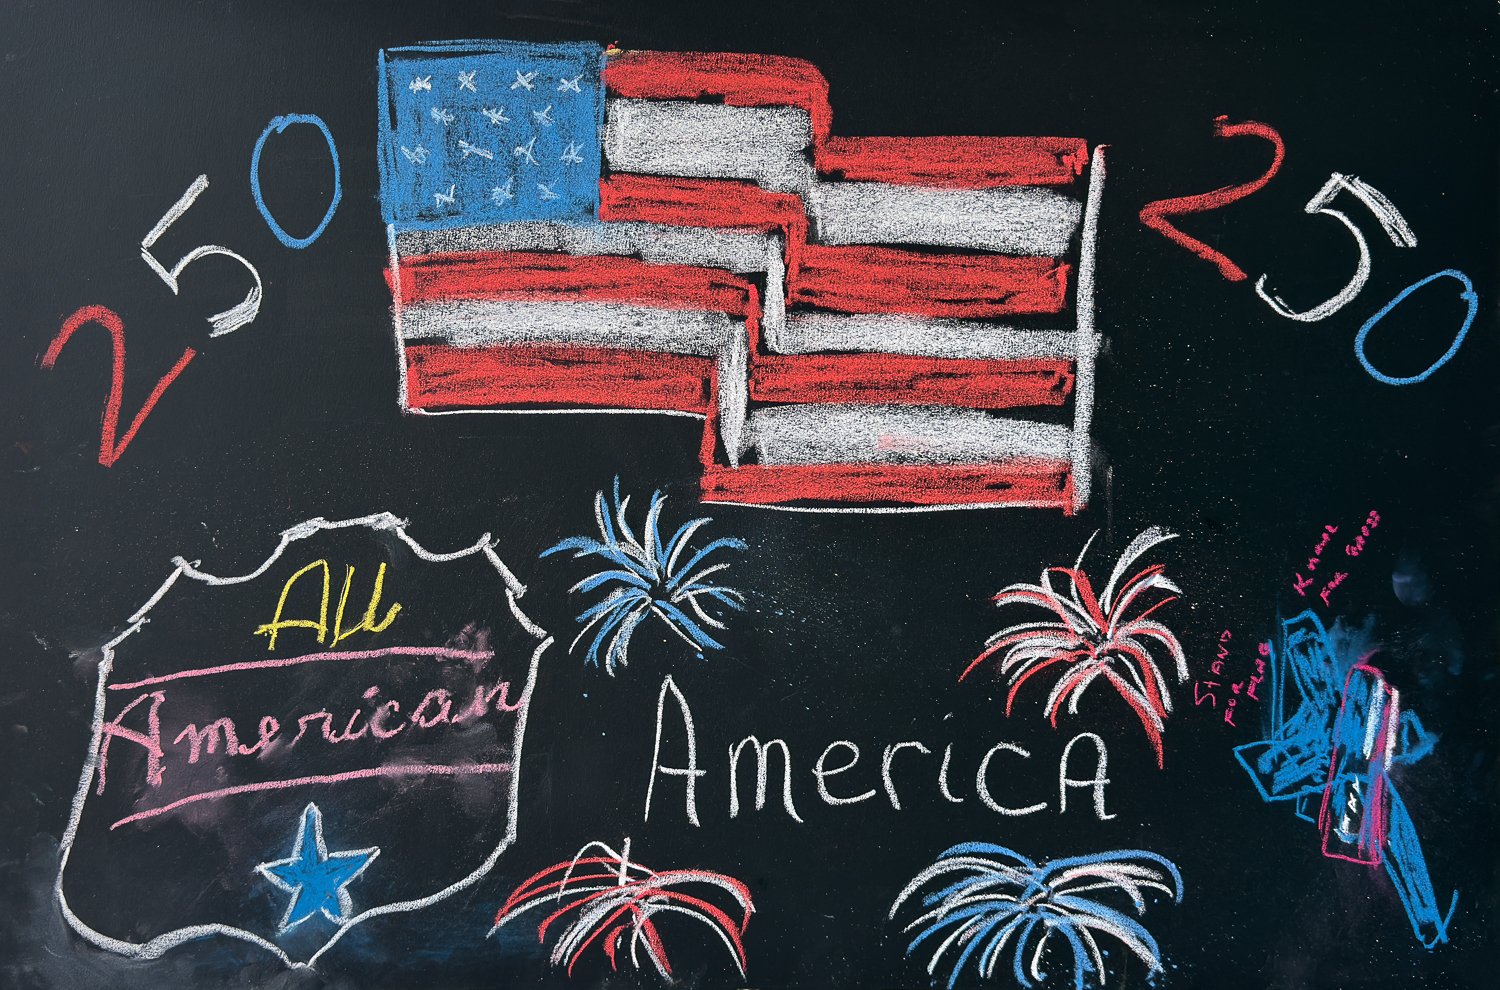 250
250
All
American
America
STAND
FOR
FLAG
KNEEL
FOR
CROSS